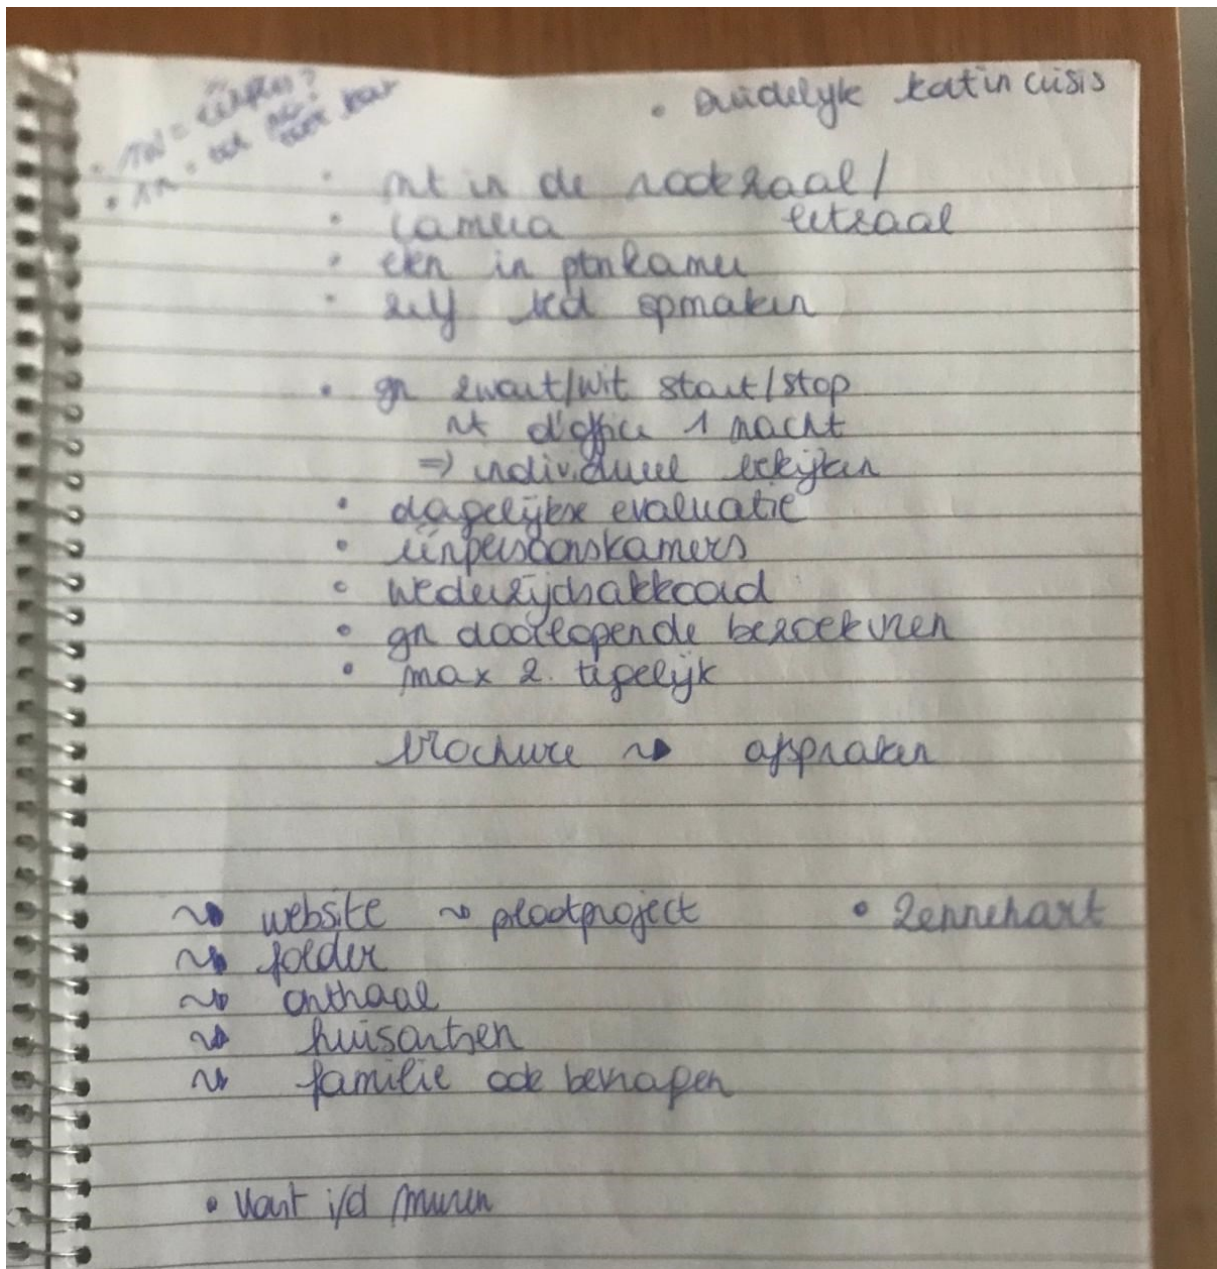 • duidelijk kat in crisis
• nt in de rookzaal /
• camera eetzaal
• eten in ptnkamer
• zelf bed opmaken
• gn zwart/wit start/stop
nt d'office 1 nacht
=> individueel bekijken
• dagelijkse evaluatie
• éénpersoonskamers
• wederzijds akkoord
• gn doorlopende bezoekuren
• max 2. tegelijk
brochure ~> afspraken
~> website ~> pilootproject • Zennehart
~> folder
~> onthaal
~> huisartsen
~> familie ook bevragen
• Kant i/d muren